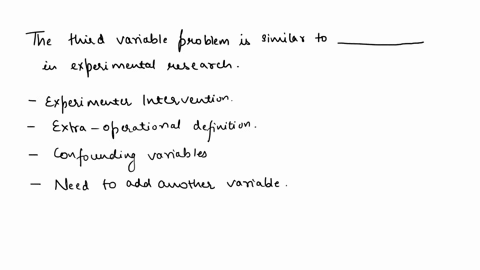 The third variable problem is similar to __________
in experimental research.
- Experimenter Intervention.
- Extra-operational definition.
- Confounding variables
- Need to add another variable.